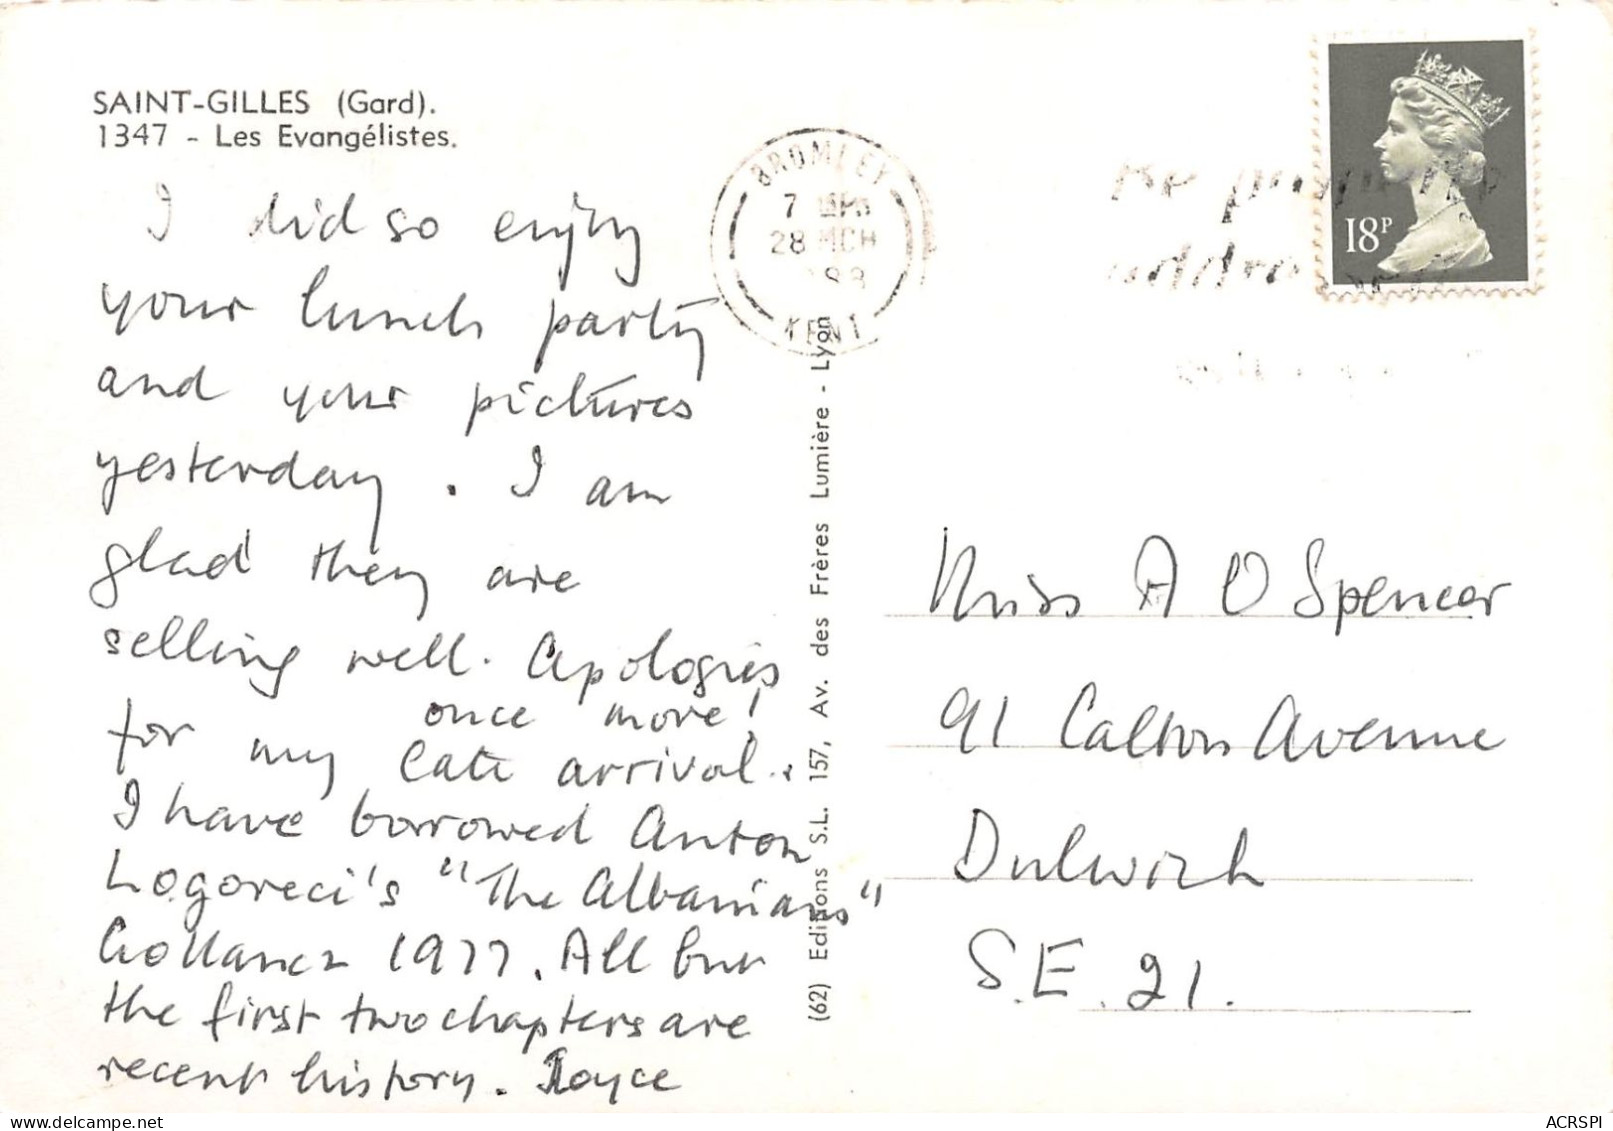 SAINT-GILLES (Gard).
1347 - Les Evangélistes.
I did so enjoy
your lunch party
and your pictures
yesterday. I am
glad they are
selling well. Apologies
once more!
for my late arrival.
I have borrowed Anton
Logoreci's "The Albanians"
Gollancz 1977. All but
the first two chapters are
recent history. Royce
(62) Editions S.L. 157, Av. des Frères Lumière - Lyon
BROMLEY
28 MCH
KENT
18P
Miss A O Spencer
91 Calton Avenue
Dulwich
S.E. 21.
ACRSPI